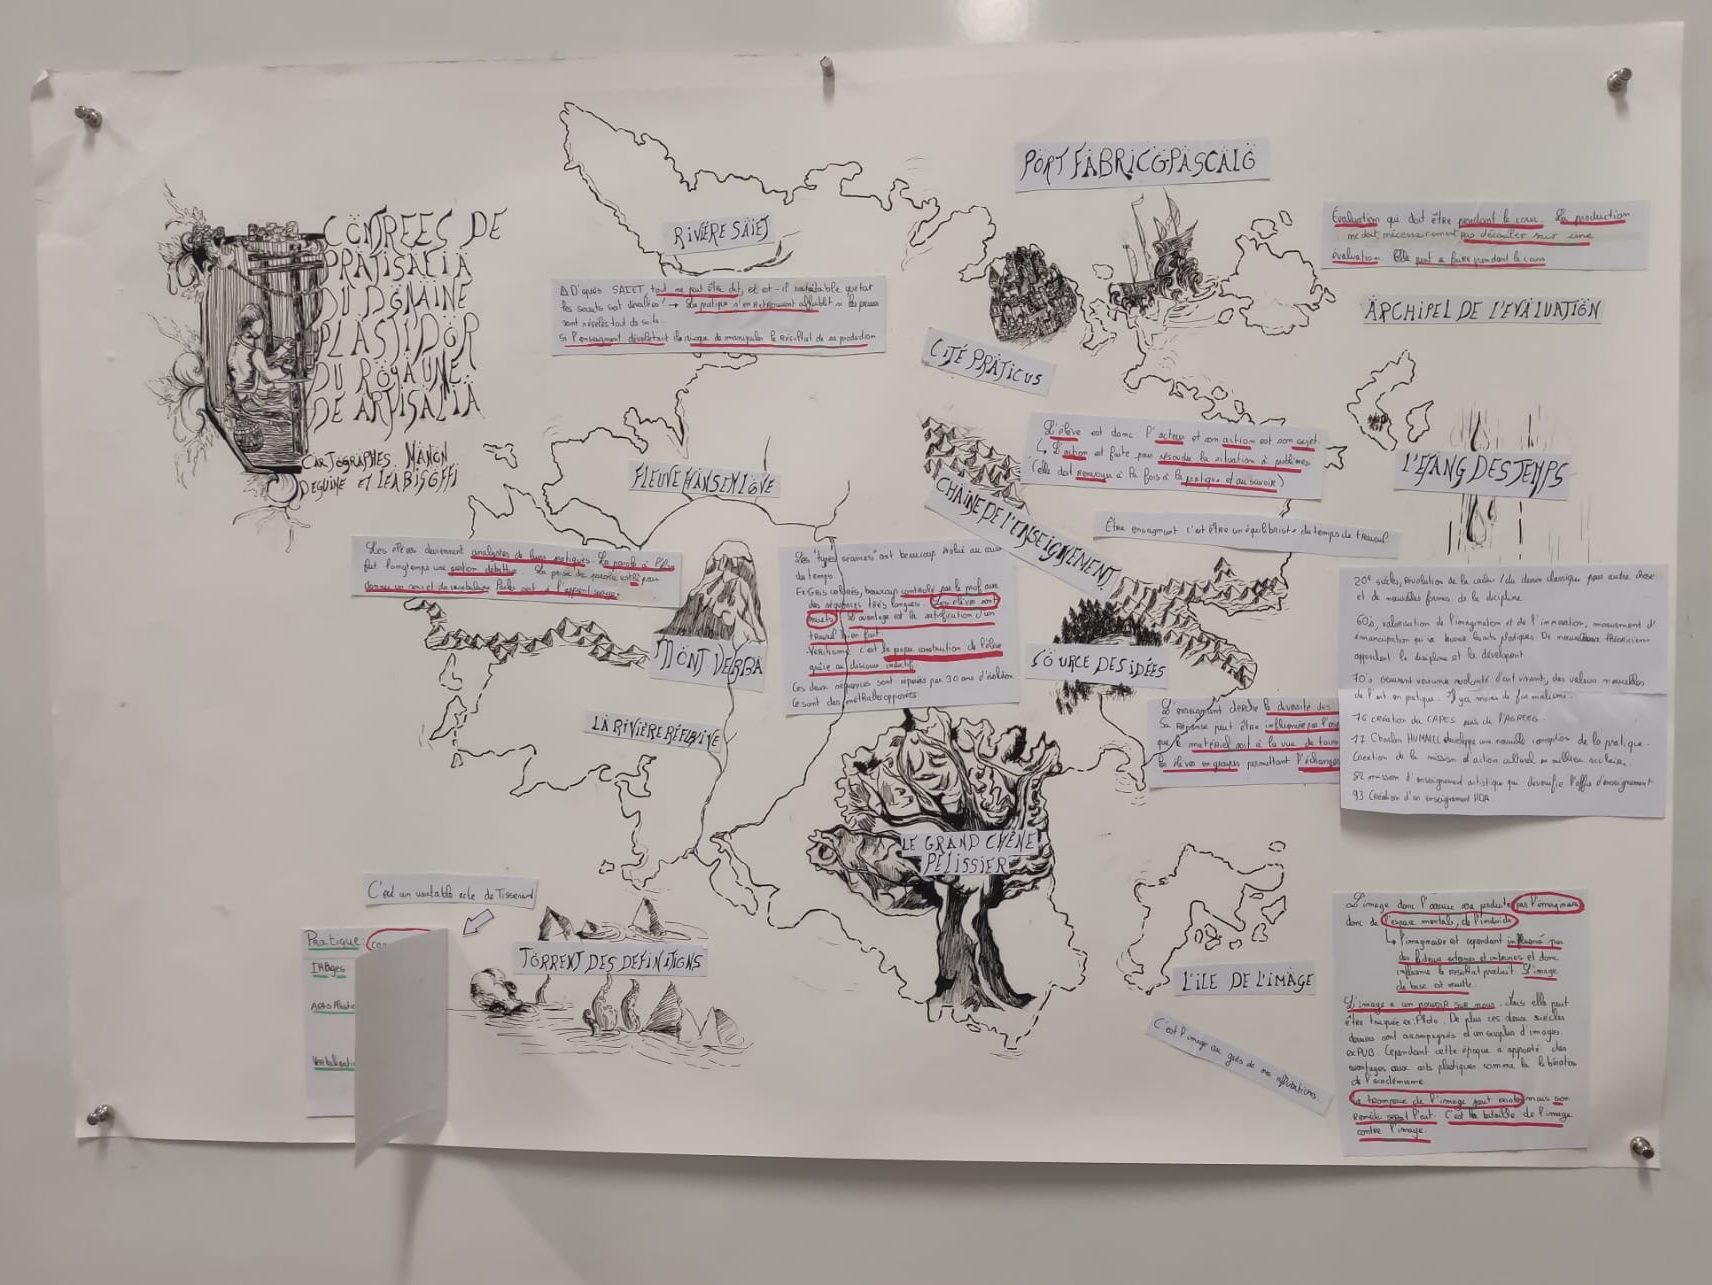 CONTREES DE
PRATISALIA
DU DOMAINE
PLASTIDOR
DU ROYAUME
DE ARTISALIA
CARTOGRAPHES MANON
DEGUINE ET LEA BISOFFI
RIVIÈRE SAIET
D'après SAIET tout ne peut être dit, et est-il souhaitable que tout
les secrets soit dévoilés? → La pratique s'en retrouverait
sont révélés tout de suite.
Si l'enseignant dévoilerait il risque de manipuler le résultat de sa production
PORT FABRICOPASCALO
Évaluation qui doit être pendant le cours. La production
ne doit nécessairement pas découler sur une
évaluation. Elle peut se faire pendant le cours
ARCHIPEL DE L'EVALUATION
CITÉ PRATICUS
L'élève est donc l'acteur et son action est son sujet.
↳ L'action est faite pour résoudre la situation à problèmes
(elle doit renvoyer à la fois à la pratique et au savoir)
L'ETANG DES TEMPS
FLEUVE
CHAINE DE L'ENSEIGNEMENT
Être enseignant c'est être un équilibriste du temps de travail
Les élèves deviennent analystes de leurs pratiques. La parole à
fut longtemps une gestion La prise de parole est là pour
donner un sens et du vocabulaire. Parler sert à l'apprentissage.
Les "types séances" ont beaucoup évolué au cours
du temps.
Ex Gris colorés, beaucoup contrôlé par le prof avec
des séquences très longues. Les élèves sont
muets. avantage est la satisfaction d'un
travail bien fait.
Verticisme c'est la propre construction de l'élève
grâce au discours inductif
Ces deux séquences sont séparées par 30 ans d'évolution
Ce sont des méthodes opposées
20e siècle, révolution de la couleur / du dessin classique pour autre chose
et de nouvelles formes de la discipline.
60's, valorisation de l'imagination et de l'innovation, mouvement d'
émancipation qui va les arts plastiques. De nouveaux théoriciens
apportent la discipline et la développent
70's ouverture vers une volonté d'art vivant, des valeurs nouvelles
de l'art en pratique. Il y a moins de formalisme.
76 création du CAPES puis de l'AGREG.
77 Charlon développe une nouvelle conception de la pratique.
Création de la mission d'action culturel en milieu scolaire.
82 mission d'enseignement artistique qui diversifie l'offre d'enseignement
93 Création d'un enseignement HDA
MONT VERBA
SOURCE DES IDÉES
L'enseignant cherche la diversité des
Sa réponse peut être influencée par
que le matériel soit à la vue de tous
les élèves en groupes permettant l'échange
LA RIVIÈRE RÉFLEXIVE
LE GRAND CHÊNE
PELISSIER
C'est un véritable acte de Tisserand
Pratique
IMages
Arts Plastic
Verbalisation
TORRENT DES DEFINITIONS
L'ILE DE L'IMAGE
C'est l'image au grès de nos affirmations.
L'image donc l'oeuvre est produite par l'imaginaire
donc de l'espace mentale, de l'individu
↳ l'imaginaire est cependant influencé par
des facteurs externes et internes et donc
influence le résultat produit. L'image
de base est
L'image a un pouvoir sur nous. Mais elle peut
être truquée ex. Photo. De plus ces deux siècles
derniers sont accompagnés d'un surplus d'images
ex PUB. Cependant cette époque a apporté des
avantages aux arts plastiques comme la libération
de l'académisme
La tromperie de l'image peut exister mais son
remède serait l'art C'est la bataille de l'image
contre l'image.